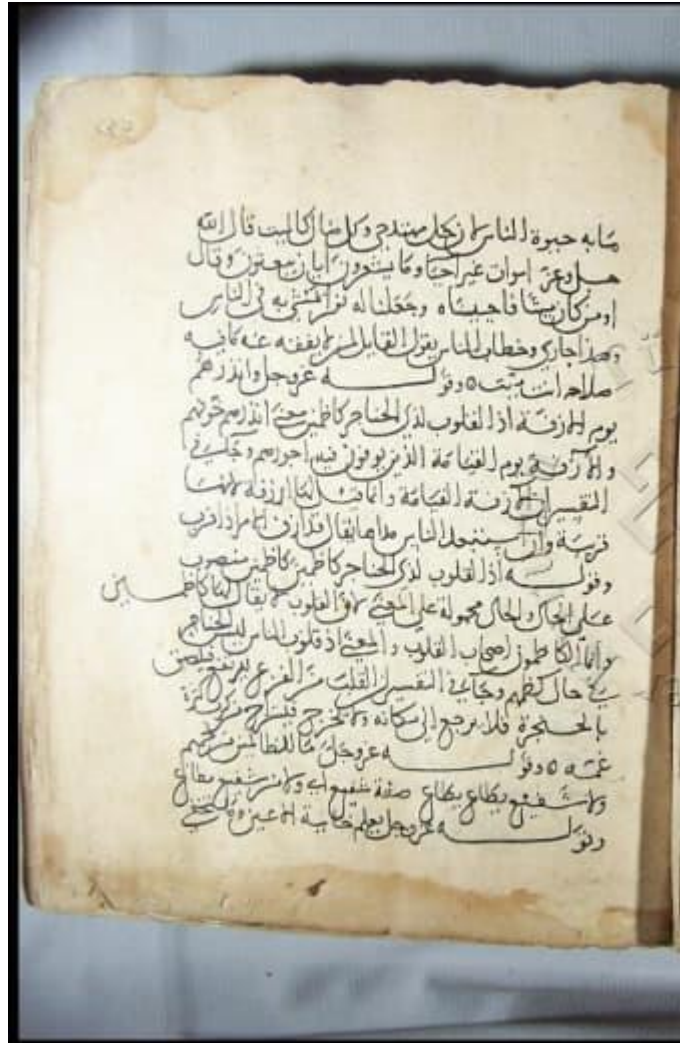 ما به حيوة الناس لان كل مهتد حي وكل ضال كالميت قال الله
جل وعز اموات غير احيا وما يشعرون ايان يبعثون وقال
اومن كان ميتا فاحييناه وجعلنا له نورا يمشي به في الناس
وهذا جار في خطاب الناس يقول القايل لمن لا يفقه عنه ما فيه
صلاحه انت ميت ٥ وقوله عز وجل وانذرهم
يوم الازفة اذ القلوب لدى الحناجر كاظمين معنى انذرهم خوفهم
والآزفة يوم القيامة الذين يوفون فيه اجورهم وجا في
التفسير ان الازفة القيامة وانما قيل لها ازفة لانها
قريبة وان استبعد الناس مداها يقال قد ازف الامر اذا قرب
وقوله اذ القلوب لدى الحناجر كاظمين كاظمين منصوب
على الحال والحال محمولة على المعنى لان القلوب لا يقال لها كاظمين
وانما الكاظمون اصحاب القلوب والمعنى اذ قلوب الناس لدى الحناجر
في حال كظمهم وجا في التفسير ان القلب من الفزع يرتفع فيلتصق
بالحنجرة فلا يرجع الى مكانه ولا يخرج فيستراح من كرب
غمه ٥ وقوله عز وجل ما للظالمين من حميم
ولا شفيع يطاع يطاع صفة شفيع اي ولا من شفيع مطاع
وقوله عز وجل يعلم خاينة الاعين وما تخفي